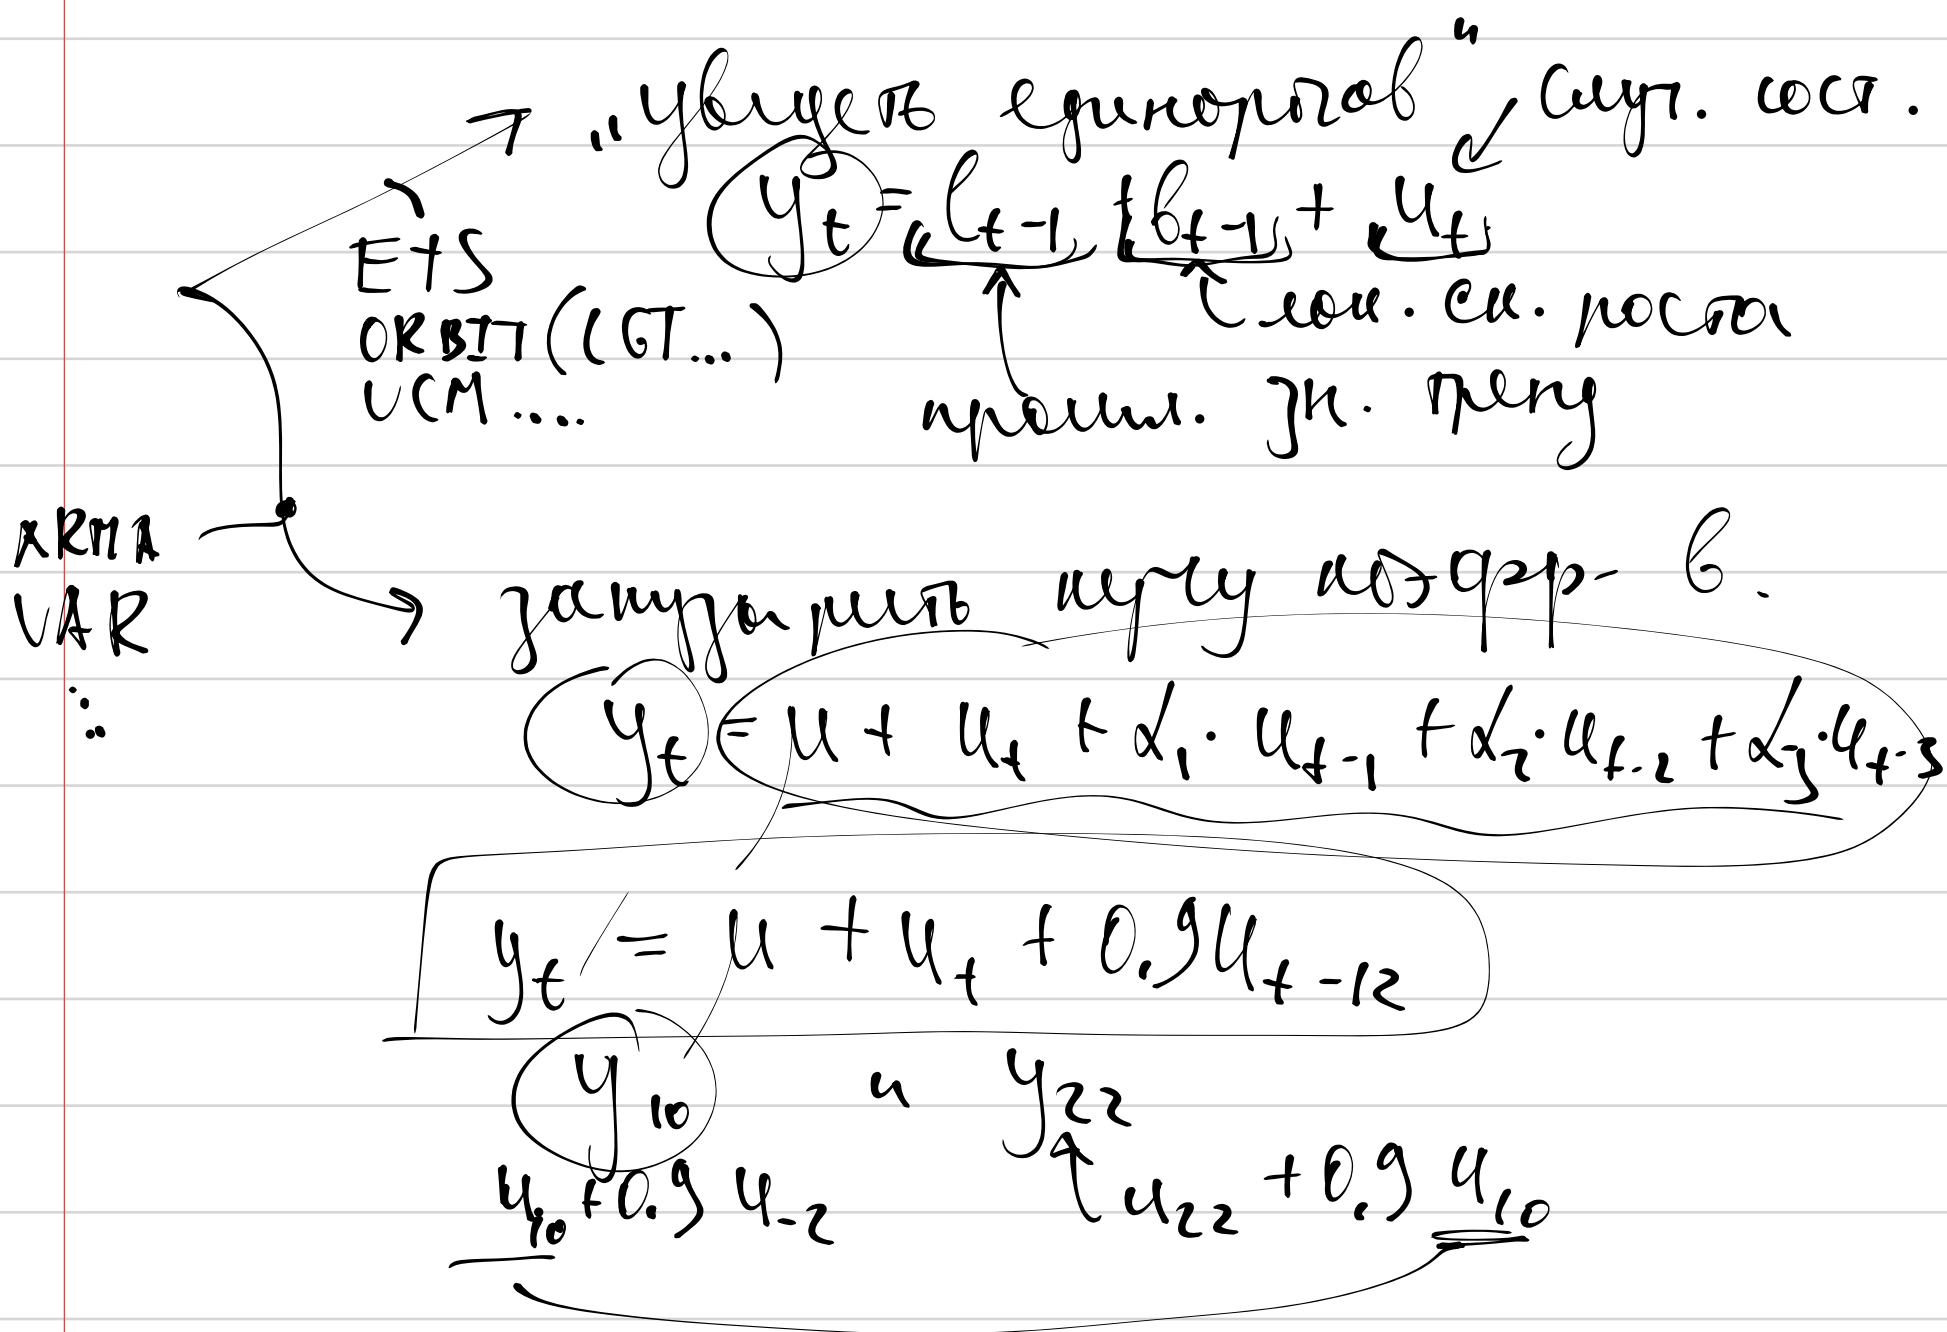 „увидеть единорогов“ случ. сост.
y_t = l_{t-1} + b_{t-1} + u_t
ETS
ORBIT (LGT...)
UCM....
лок. ск. роста
прошл. зн. тренд
ARMA
VAR
запузырить кучу коэфф- в.
y_t = μ + u_t + α_1 · u_{t-1} + α_2 · u_{t-2} + α_3 · u_{t-3}
y_t = μ + u_t + 0.9 u_{t-12}
y_{10} и y_{22}
u_{10} + 0.9 u_{-2} u_{22} + 0.9 u_{10}